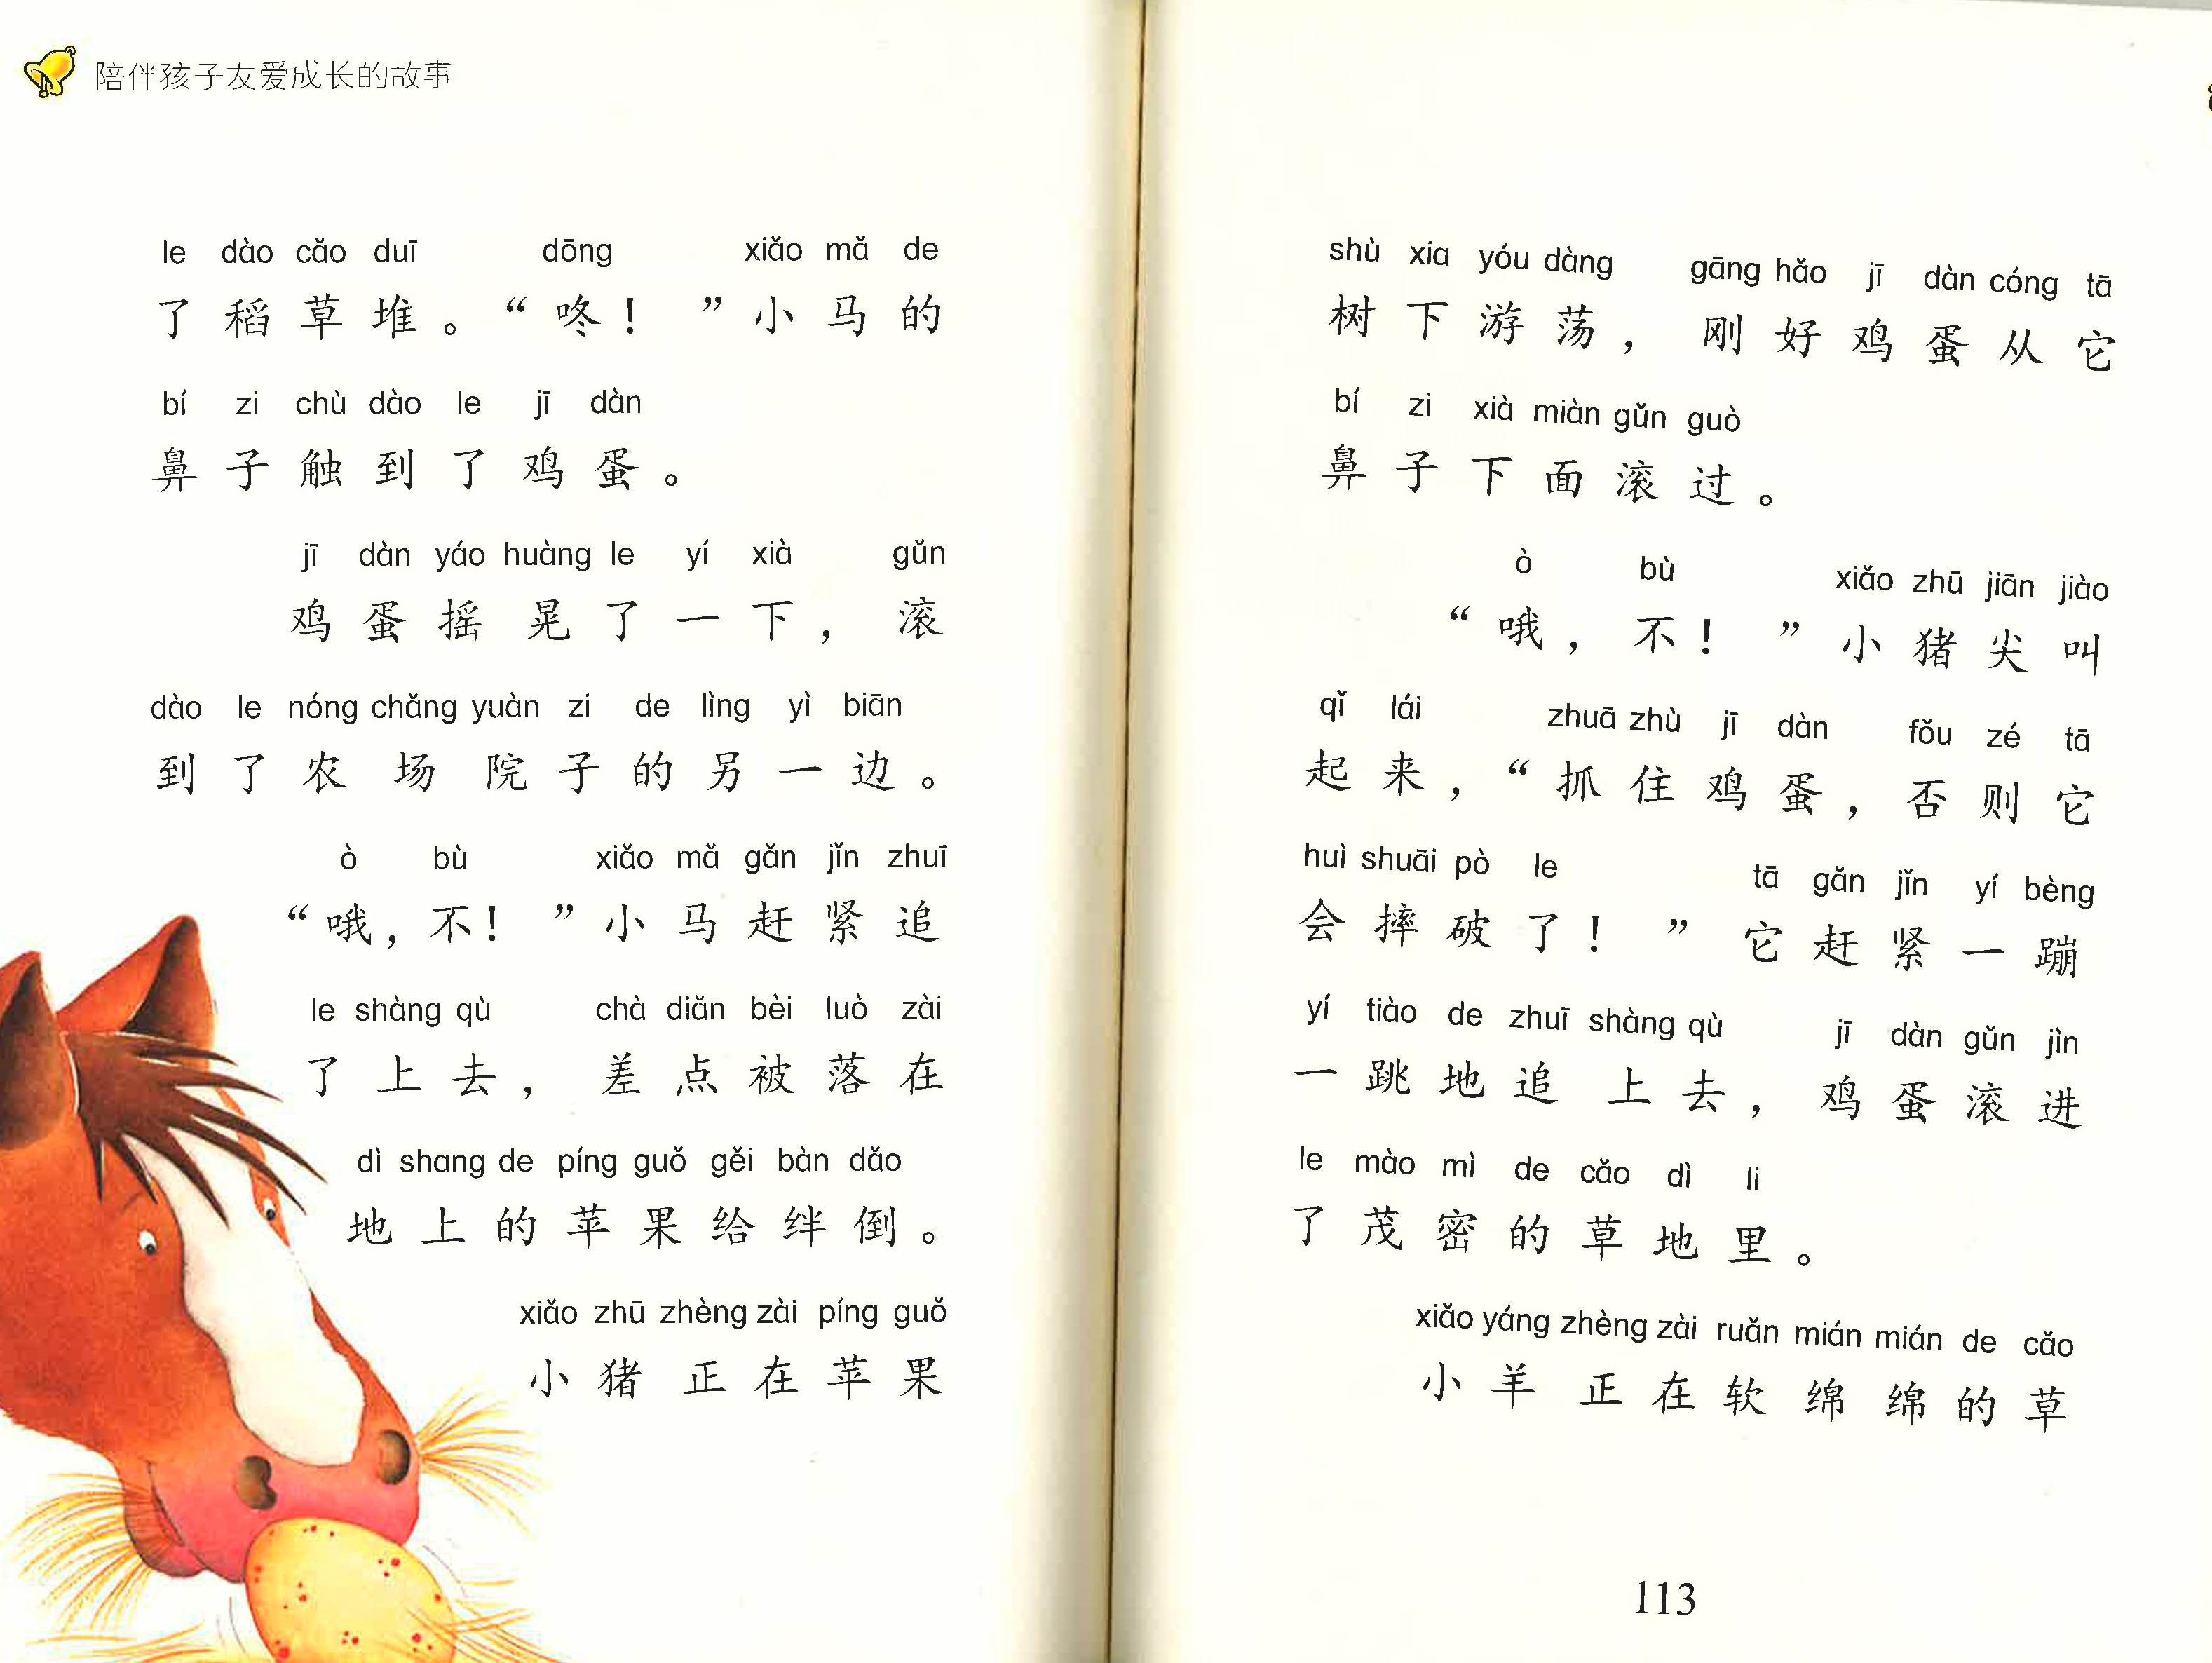 陪伴孩子友爱成长的故事
le dào cǎo duī dōng xiǎo mǎ de
了稻草堆。“咚！”小马的
bí zi chù dào le jī dàn
鼻子触到了鸡蛋。
jī dàn yáo huàng le yí xià gǔn
鸡蛋摇晃了一下，滚
dào le nóng chǎng yuàn zi de lìng yì biān
到了农场院子的另一边。
ò bù xiǎo mǎ gǎn jǐn zhuī
“哦，不！”小马赶紧追
le shàng qù chà diǎn bèi luò zài
了上去，差点被落在
dì shang de píng guǒ gěi bàn dǎo
地上的苹果给绊倒。
xiǎo zhū zhèng zài píng guǒ
小猪正在苹果
shù xia yóu dàng gāng hǎo jī dàn cóng tā
树下游荡，刚好鸡蛋从它
bí zi xià miàn gǔn guò
鼻子下面滚过。
ò bù xiǎo zhū jiān jiào
“哦，不！”小猪尖叫
qǐ lái zhuā zhù jī dàn fǒu zé tā
起来，“抓住鸡蛋，否则它
huì shuāi pò le tā gǎn jǐn yí bèng
会摔破了！”它赶紧一蹦
yí tiào de zhuī shàng qù jī dàn gǔn jìn
一跳地追上去，鸡蛋滚进
le mào mì de cǎo dì li
了茂密的草地里。
xiǎo yáng zhèng zài ruǎn mián mián de cǎo
小羊正在软绵绵的草
113